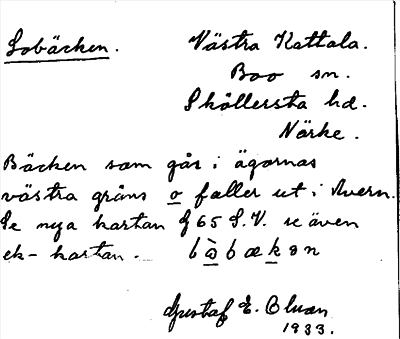 Lobäcken. Västra Kattala.
Boo sn.
Sköllersta hd.
Närke.
Bäcken som går i ägornas
västra gräns o faller ut i Avern.
Se nya kartan J 65 S.V. se även
ek-kartan.
Gustaf E. Bluan
1933.